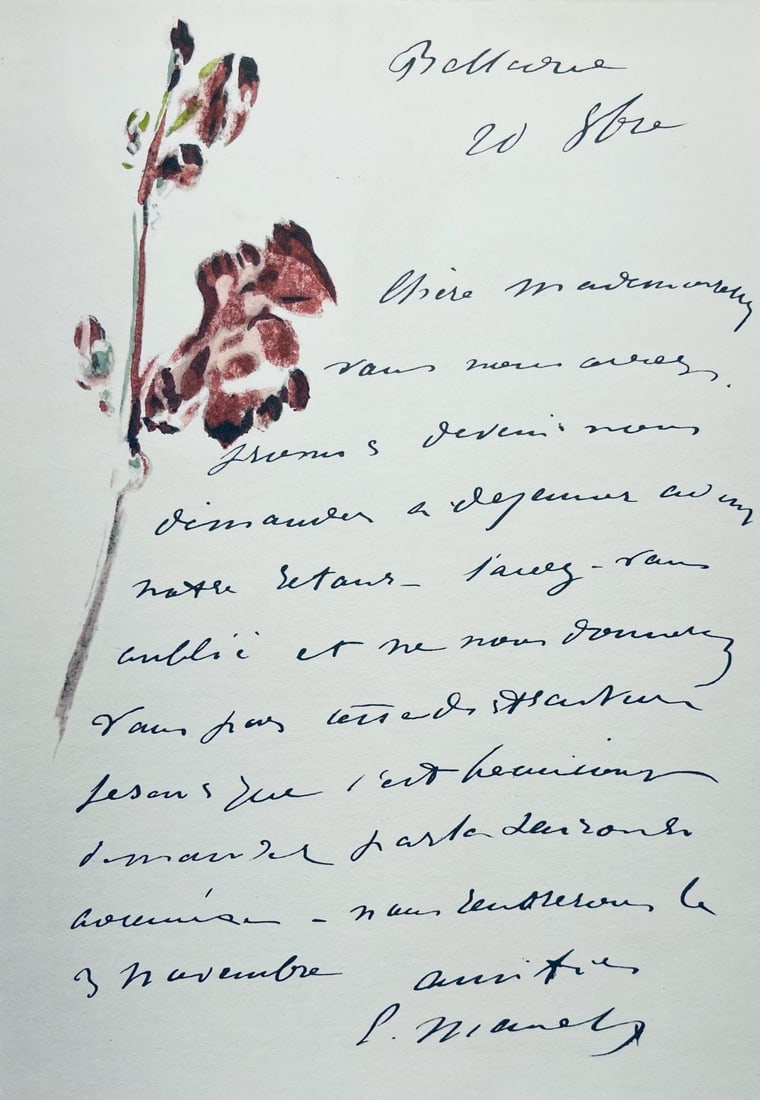 Bellevue
20 8bre
Chère mademoiselle
vous nous aviez
promis devenir nous
demander a dejeuner avant
notre retour – l'avez-vous
oublié et ne nous donnerez
vous pas cette distraction
Jesais que c'est beaucoup
demander par la saison
– nous rentrerons le
3 novembre amitiés
E. Manet